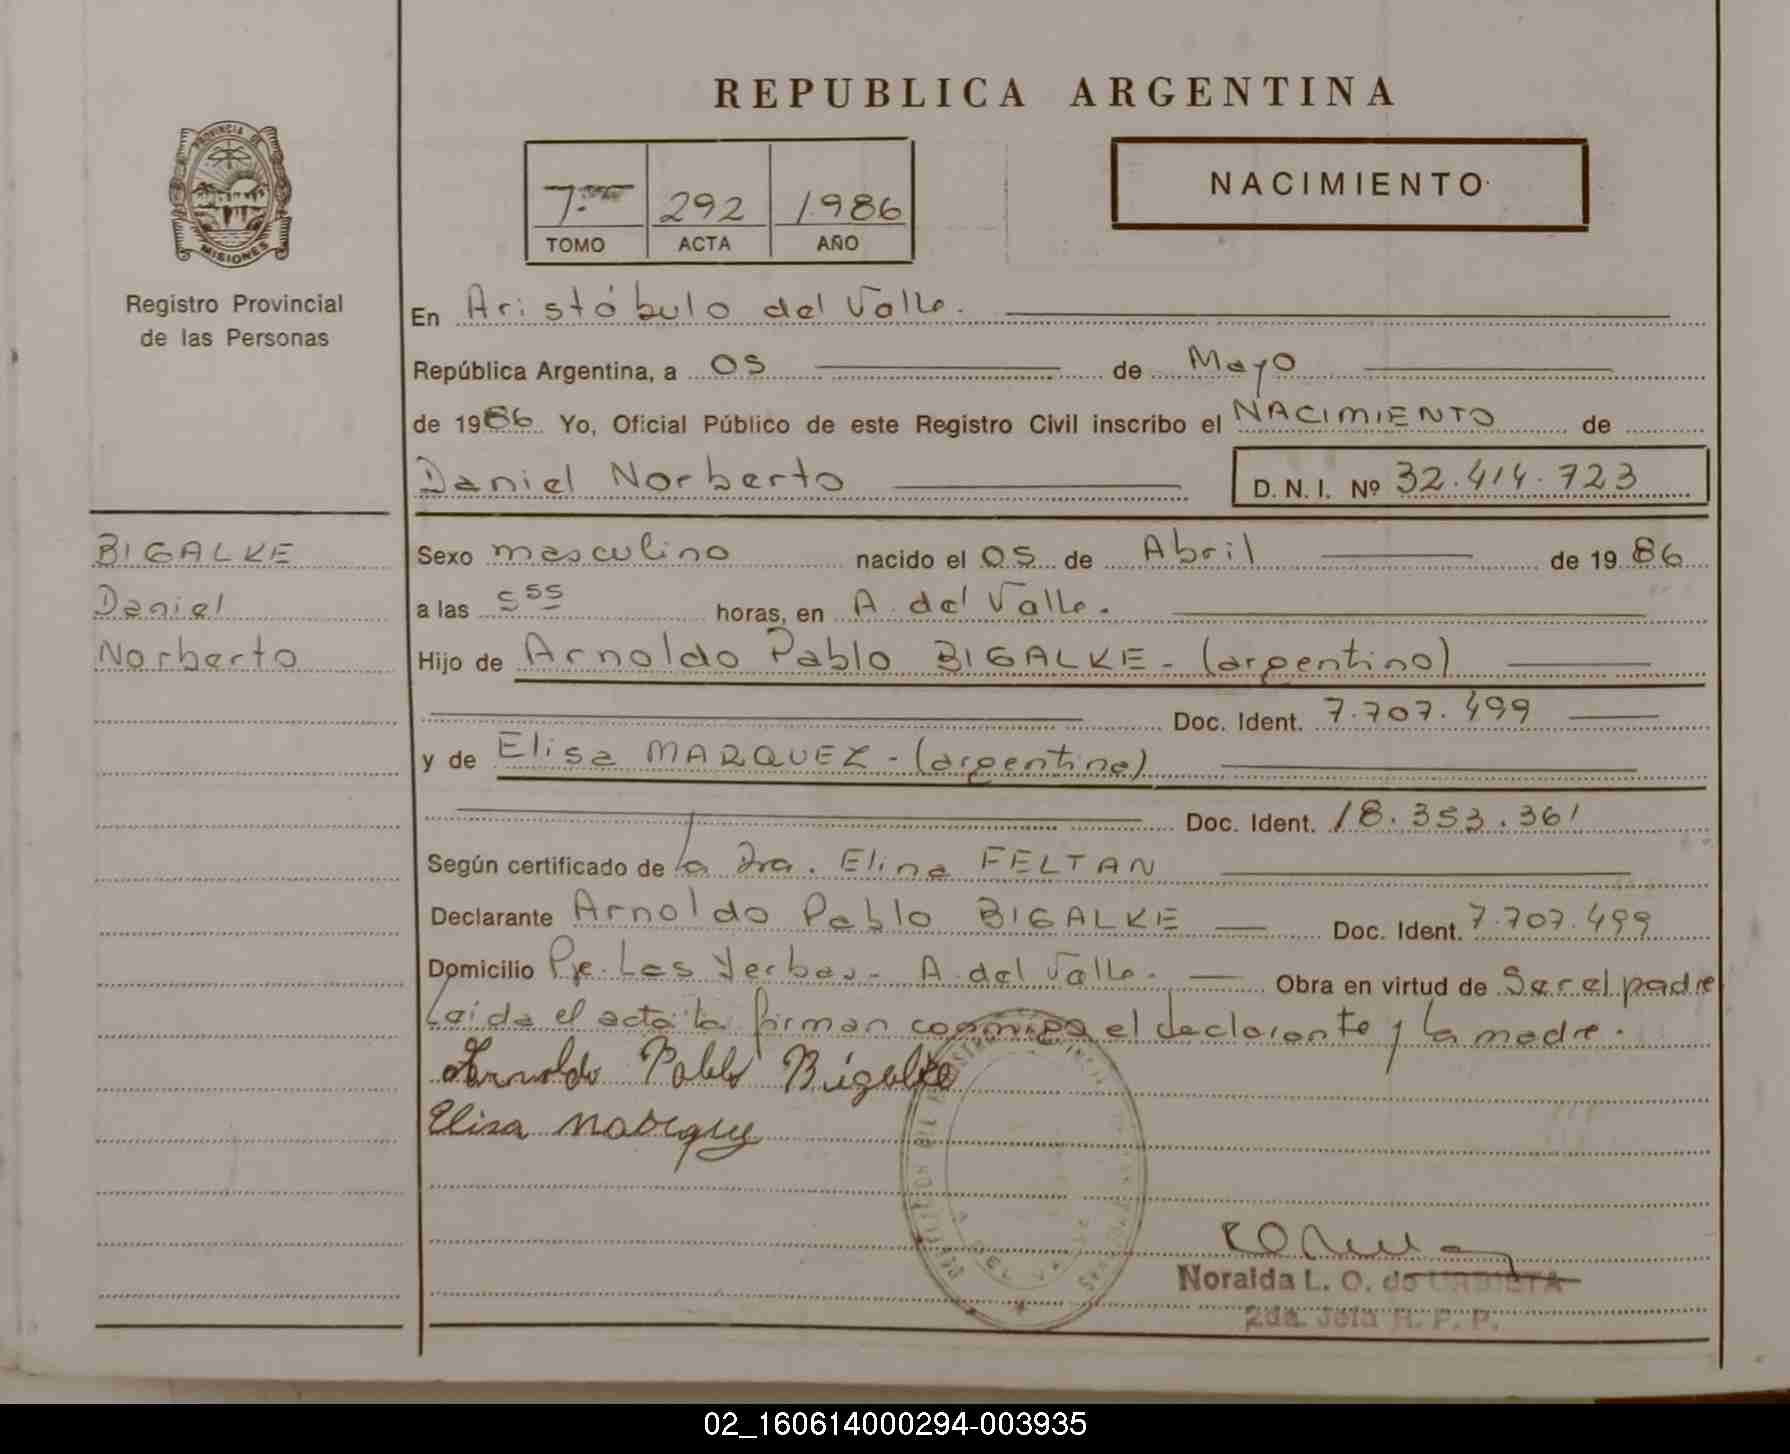 REPUBLICA ARGENTINA
PROVINCIA DE
MISIONES
Registro Provincial
de las Personas
7
292
1986
TOMO
ACTA
AÑO
NACIMIENTO
En Aristóbulo del Valle.
República Argentina, a 05 de Mayo
de 1986 Yo, Oficial Público de este Registro Civil inscribo el NACIMIENTO de
Daniel Norberto D. N. I. Nº 32.414.723
BIGALKE
Daniel
Norberto
Sexo masculino nacido el 05 de Abril de 1986
a las 5 55 horas, en A. del Valle.
Hijo de Arnoldo Pablo BIGALKE - (argentino)
Doc. Ident. 7.707.499
y de Elisa MARQUEZ - (argentina)
Doc. Ident. 18.353.361
Según certificado de la Dra. Elina FELTAN
Declarante Arnoldo Pablo BIGALKE Doc. Ident. 7.707.499
Domicilio Pje. Las Yerbas - A. del Valle. Obra en virtud de Ser el padre
Leída el acta la firman conmigo el declarante y la madre.
Arnoldo Pablo Bigalke
Elisa
Noralda L. O. de URBIETA
2da. Jefa R. P. P.
02_160614000294-003935